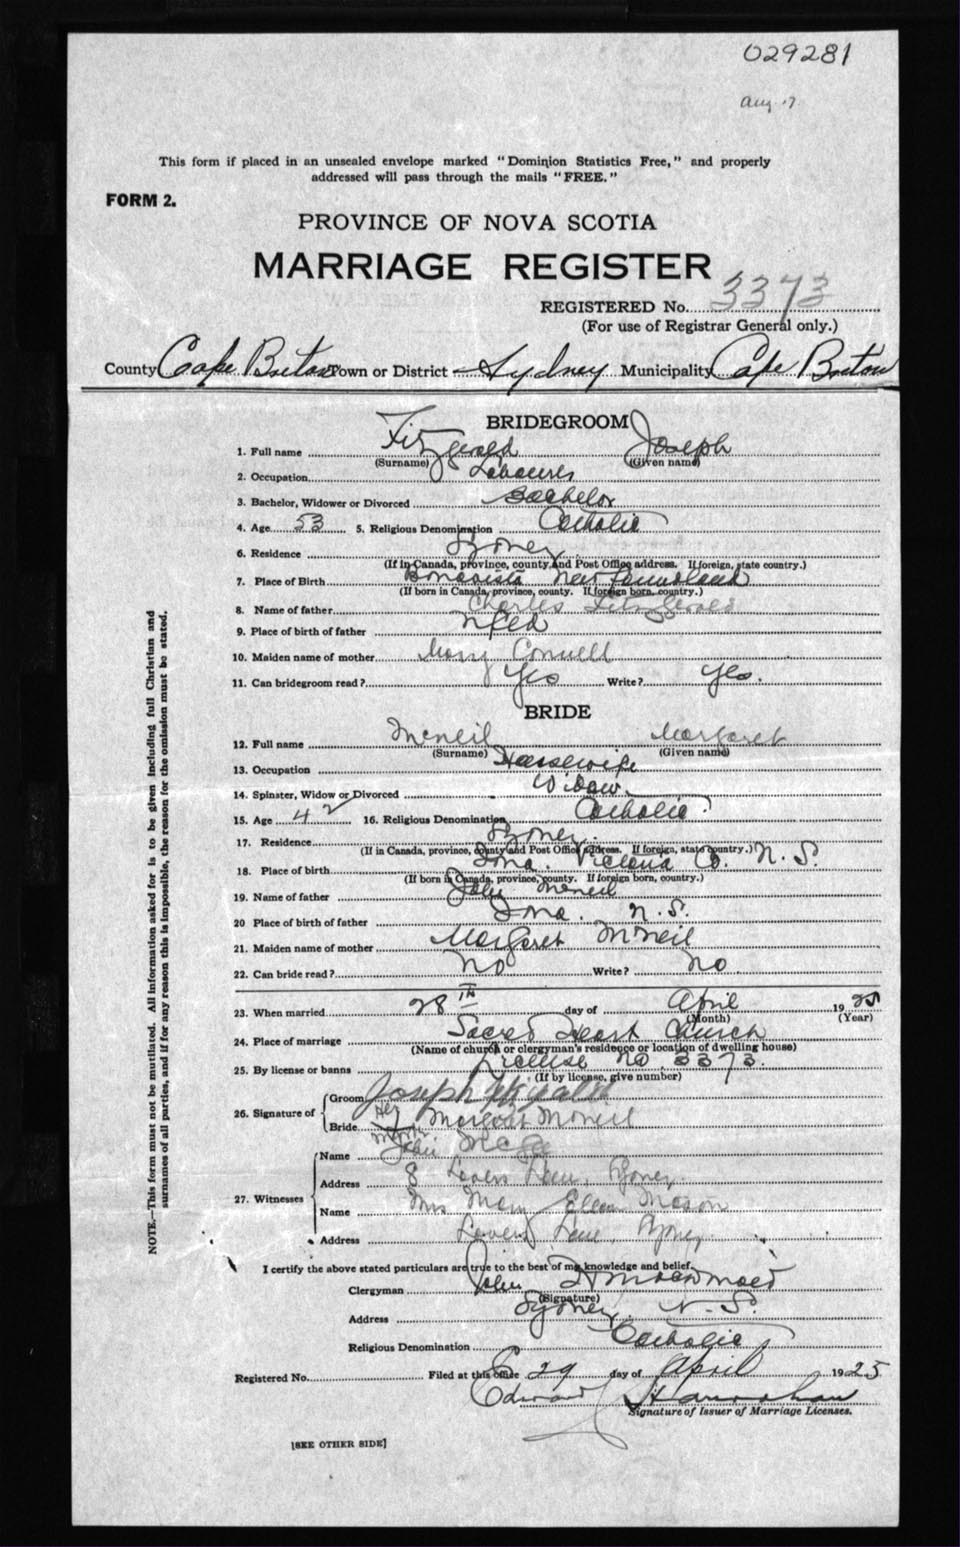 029281
Aug. 17
This form if placed in an unsealed envelope marked "Dominion Statistics Free," and properly
addressed will pass through the mails "FREE."
FORM 2.
PROVINCE OF NOVA SCOTIA
MARRIAGE REGISTER
REGISTERED No. 3373
(For use of Registrar General only.)
County Cape Breton Town or District Sydney Municipality Cape Breton
BRIDEGROOM
1. Full name Fitzgerald Joseph
(Surname) (Given name)
2. Occupation Labourer
3. Bachelor, Widower or Divorced Bachelor
4. Age 53 5. Religious Denomination Catholic
6. Residence Sydney
(If in Canada, province, county and Post Office address. If foreign, state country.)
7. Place of Birth Bonavista Newfoundland
(If born in Canada, province, county. If foreign born, country.)
8. Name of father Charles Fitzgerald
9. Place of birth of father Nfld
10. Maiden name of mother Mary Connell
11. Can bridegroom read? Yes Write? Yes.
BRIDE
12. Full name McNeil Margaret
(Surname) (Given name)
13. Occupation Housewife
14. Spinster, Widow or Divorced Widow
15. Age 42 16. Religious Denomination Catholic
17. Residence Sydney.
(If in Canada, province, county and Post Office address. If foreign, state country.)
18. Place of birth Iona. Victoria Co. N. S.
(If born in Canada, province, county. If foreign born, country.)
19. Name of father John McNeil
20 Place of birth of father Iona. N. S.
21. Maiden name of mother Margaret McNeil
22. Can bride read? No Write? No
23. When married 28th day of April 1925
(Month) (Year)
24. Place of marriage Sacred Heart Church
(Name of church or clergyman's residence or location of dwelling house)
25. By license or banns License No 3373.
(If by license, give number)
26. Signature of
Groom Joseph
Bride Margaret McNeil
Her
Mark
27. Witnesses
Name John
Address 8 Lane, Sydney.
Name Mrs Mary Ellen Mason
Address Lane, Sydney.
I certify the above stated particulars are true to the best of my knowledge and belief.
Clergyman John
(Signature)
Address Sydney N. S.
Religious Denomination Catholic
Registered No. Filed at this office 29 day of April 1925
Edward Hanrahan
Signature of Issuer of Marriage Licenses.
[SEE OTHER SIDE]
NOTE.—This form must not be mutilated. All information asked for is to be given including full Christian and
surnames of all parties, and if for any reason this is impossible, the reason for the omission must be stated.